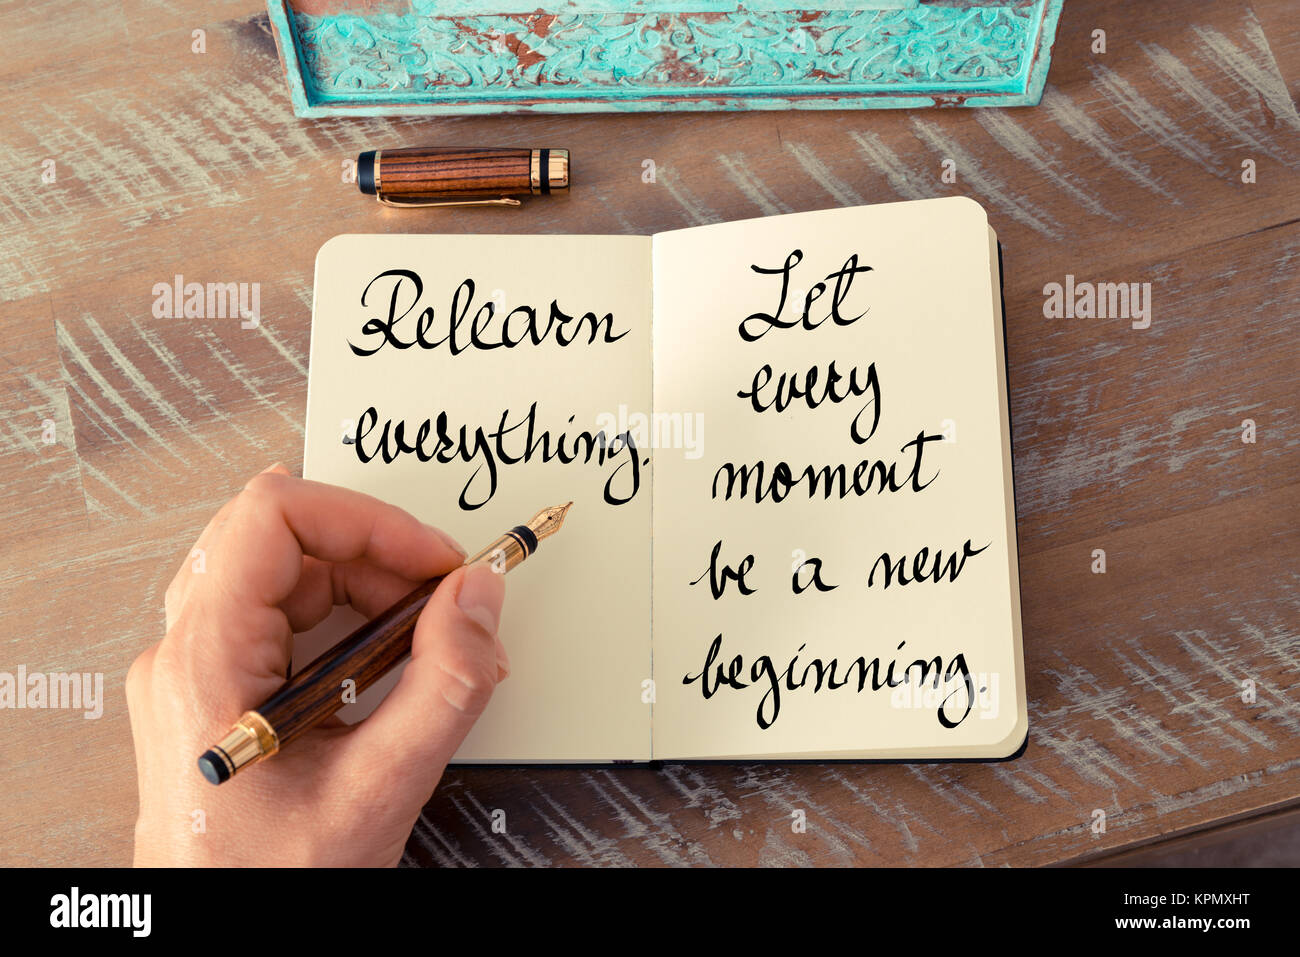 Relearn
everything.
Let
every
moment
be a new
beginning.
alamy
alamy
Image ID: KPMXHT
www.alamy.com